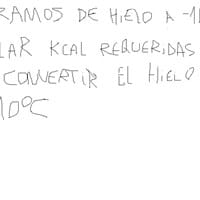 RAMOS DE HIELO A -1
LAR KCAL REQUERIDAS
CONVERTIR EL HIELO
10°C